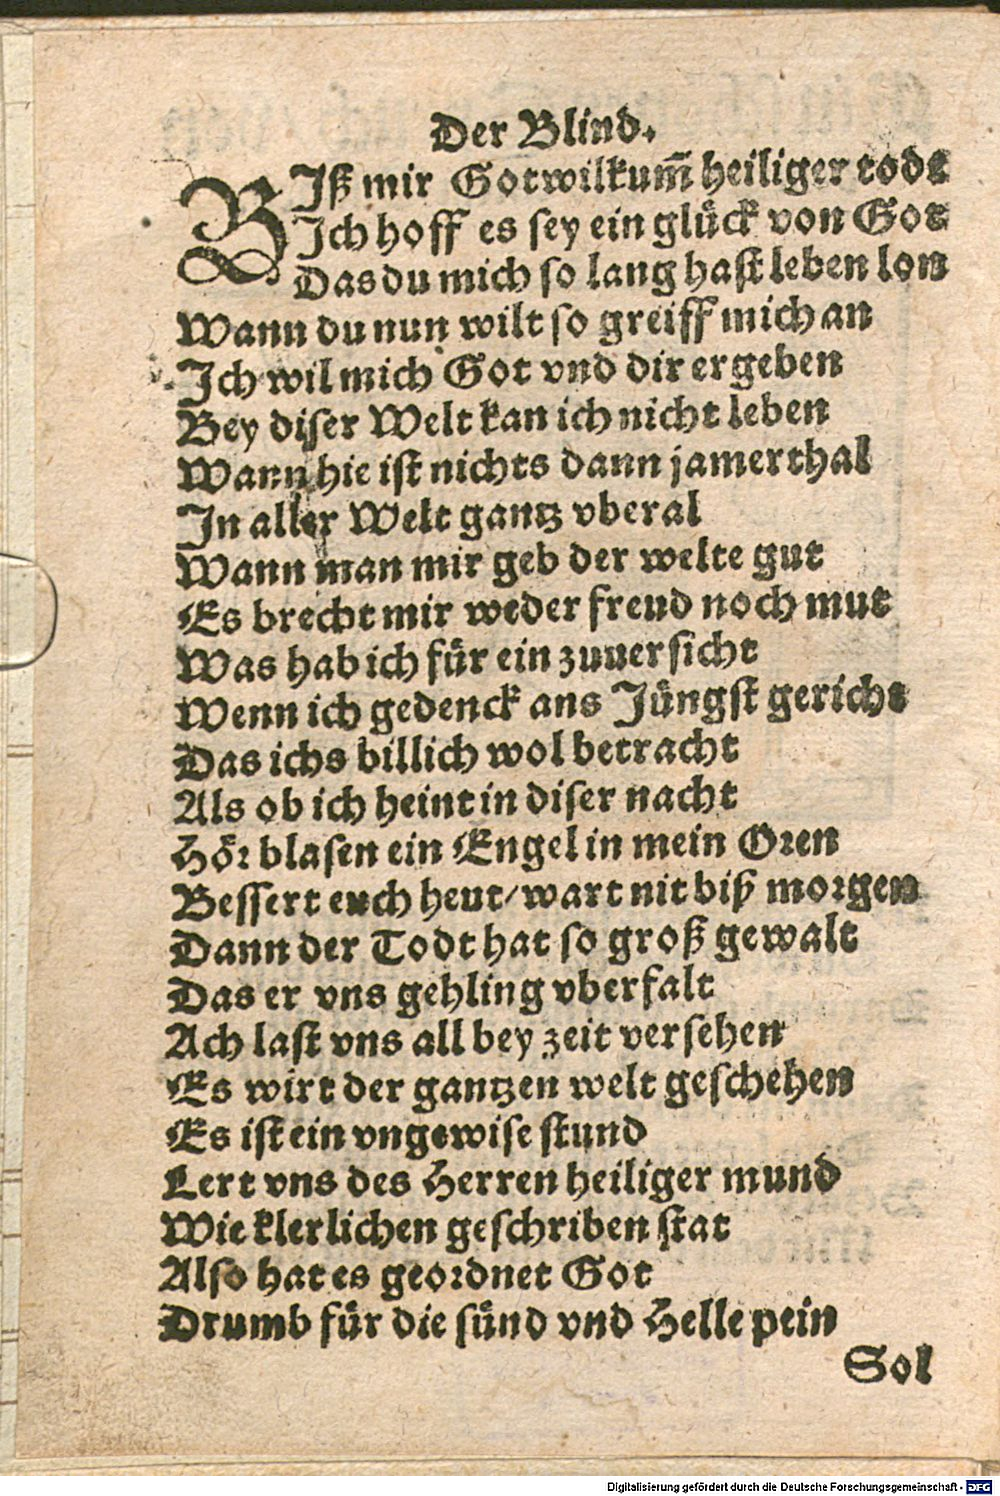 Der Blind.
BIß mir Gotwilkum̄ heiliger todt
Ich hoff es sey ein glück von Got
Das du mich so lang hast leben lon
Wann du nun wilt so greiff mich an
Ich wil mich Got vnd dir ergeben
Bey diser Welt kan ich nicht leben
Wann hie ist nichts dann jamerthal
In aller Welt gantz vberal
Wann man mir geb der welte gut
Es brecht mir weder freud noch mut
Was hab ich für ein zuuersicht
Wenn ich gedenck ans Jüngst gericht
Das ichs billich wol betracht
Als ob ich heint in diser nacht
Hör blasen ein Engel in mein Oren
Bessert euch heut/wart nit biß morgen
Dann der Todt hat so groß gewalt
Das er vns gehling vberfalt
Ach last vns all bey zeit versehen
Es wirt der gantzen welt geschehen
Es ist ein vngewise stund
Lert vns des Herren heiliger mund
Wie klerlichen geschriben stat
Also hat es geordnet Got
Drumb für die sünd vnd Helle pein
Sol
Digitalisierung gefördert durch die Deutsche Forschungsgemeinschaft - DFG